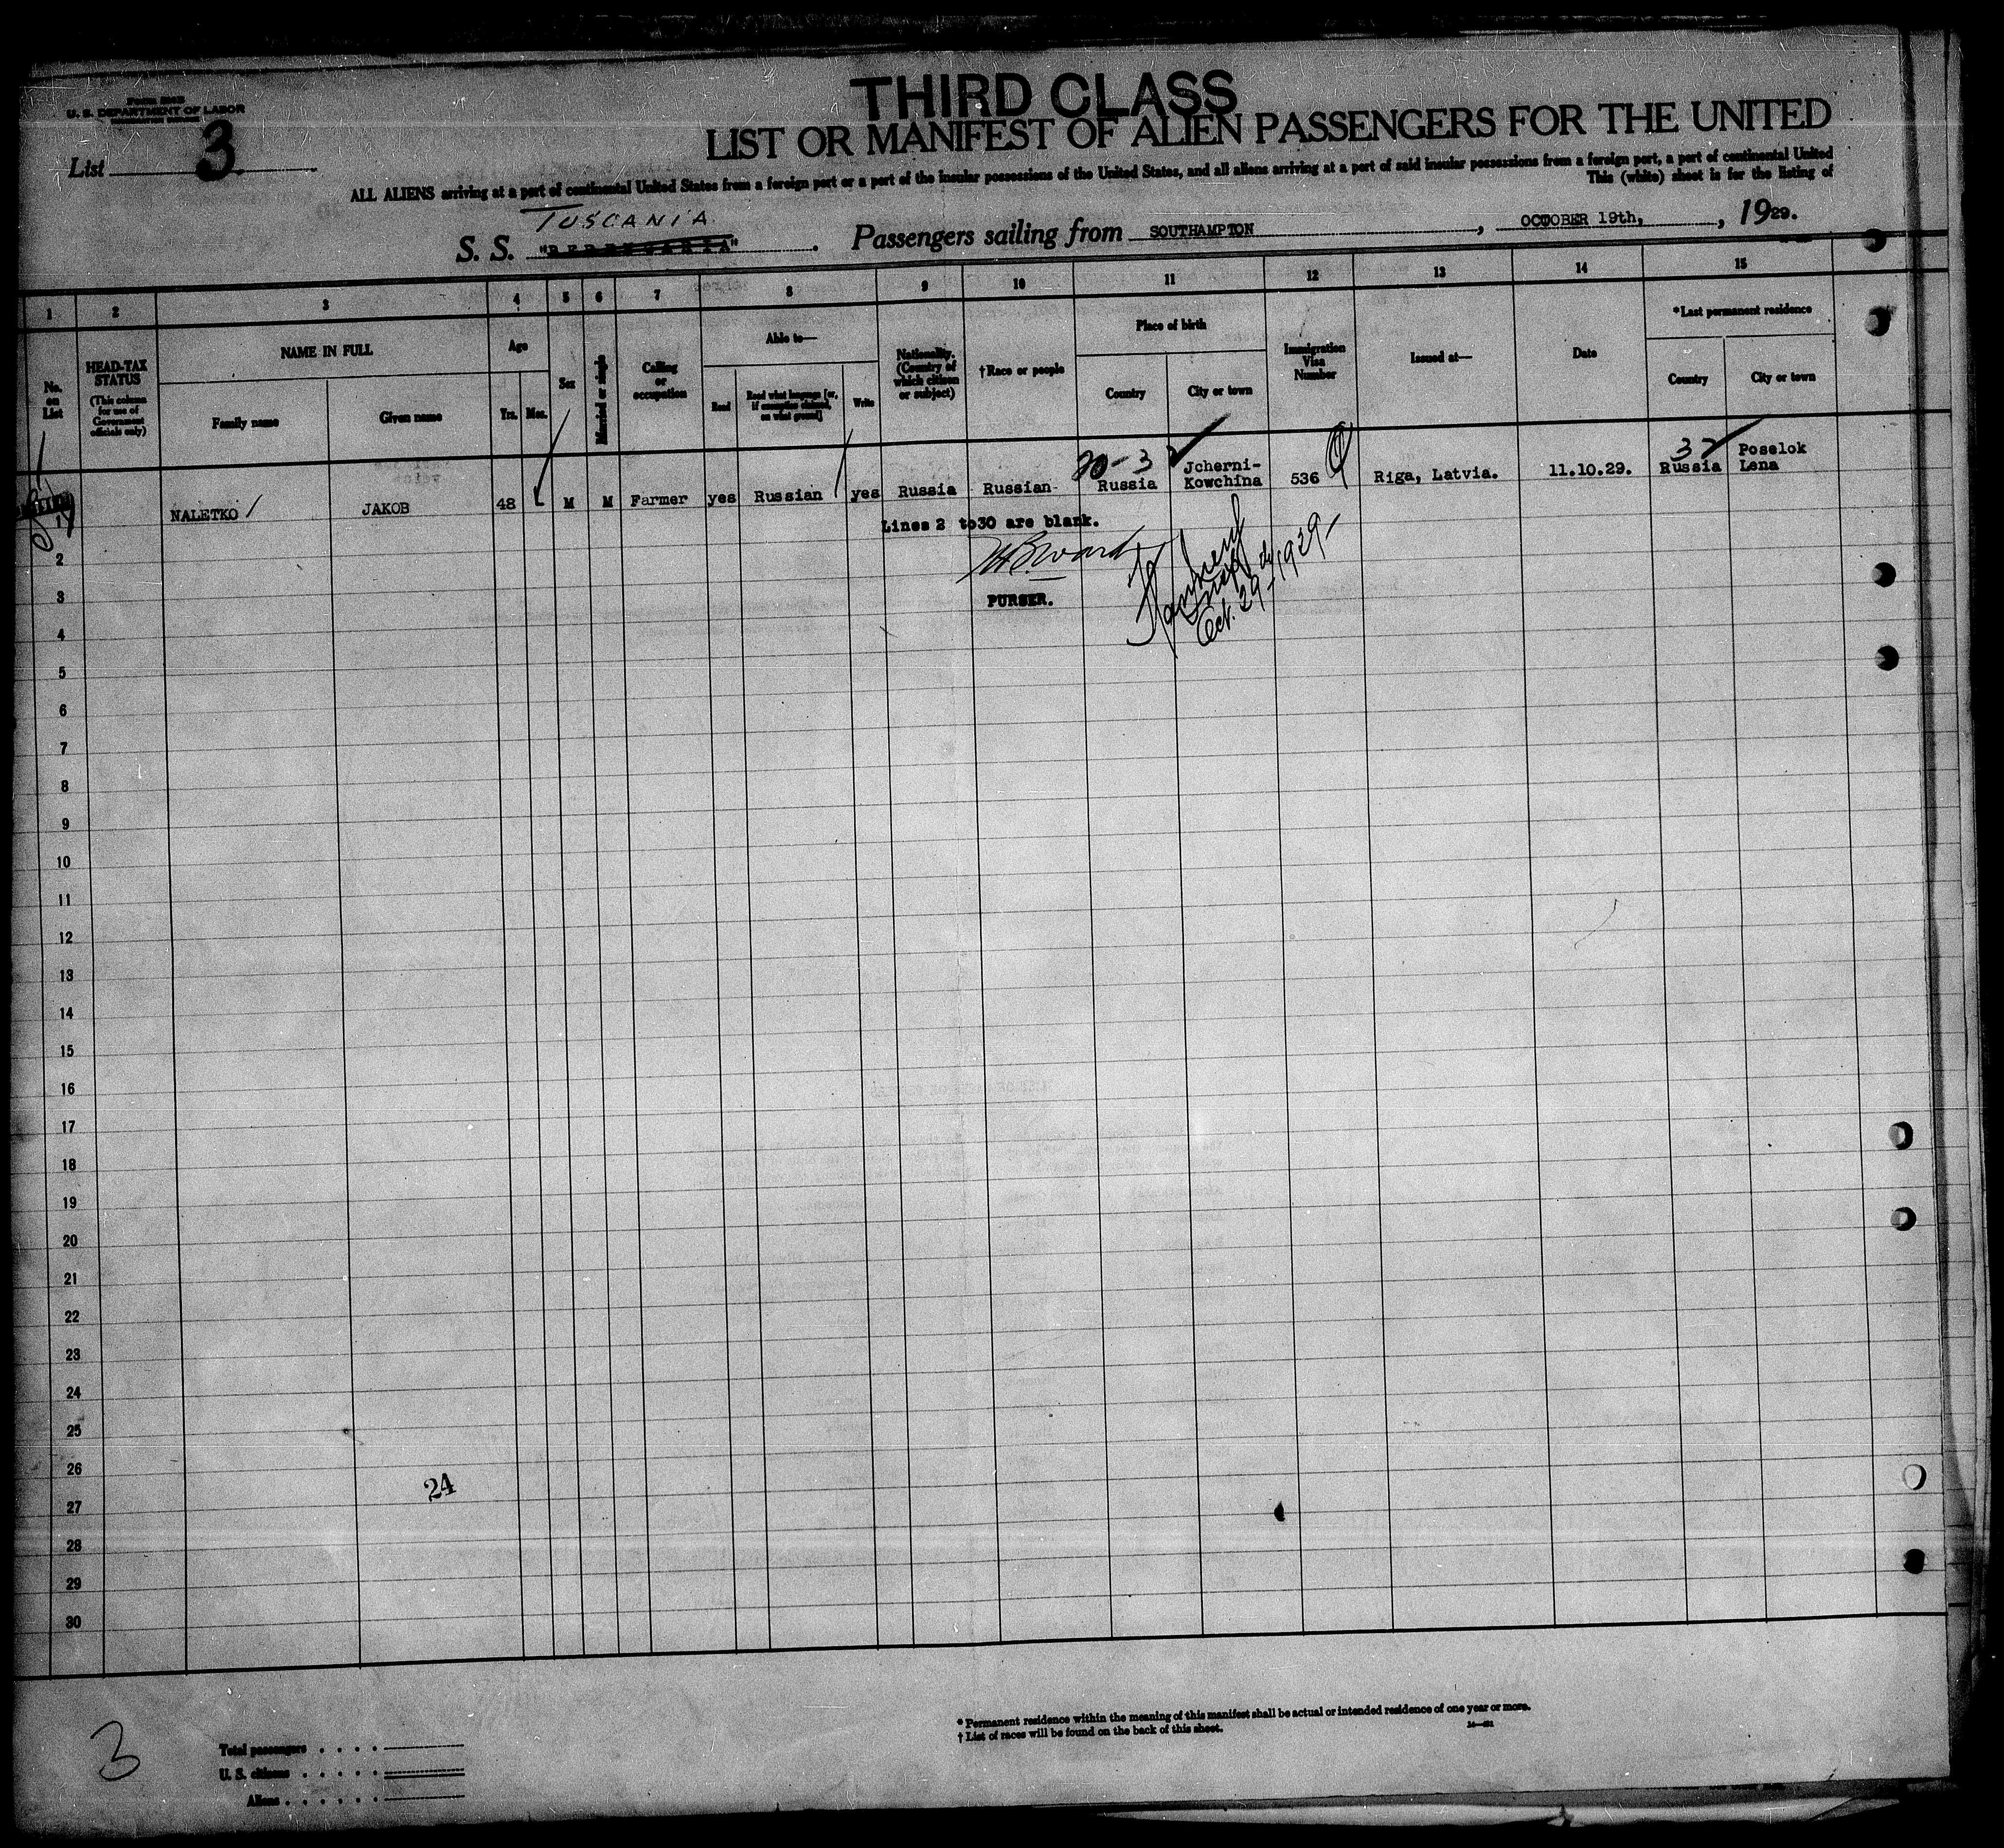 THIRD CLASS
U. S. DEPARTMENT OF LABOR
LIST OR MANIFEST OF ALIEN PASSENGERS FOR THE UNITED
List 3
ALL ALIENS arriving at a port of continental United States from a foreign port or a port of the insular possessions of the United States, and all aliens arriving at a port of said insular possessions from a foreign port, a port of continental United
This (white) sheet is for the listing of
TUSCANIA
S. S. "BERENGARIA". Passengers sailing from SOUTHAMPTON, OCTOBER 19th, 1929.
1 2 3 4 5 6 7 8 9 10 11 12 13 14 15
No. on List
HEAD-TAX STATUS (This column for use of Government officials only)
NAME IN FULL
Family name
Given name
Age
Yrs. Mos.
Sex
Married or single
Calling or occupation
Able to—
Read
Read what language [or, if exemption claimed, on what ground]
Write
Nationality. (Country of which citizen or subject)
†Race or people
Place of birth
Country
City or town
Immigration Visa Number
Issued at—
Date
*Last permanent residence
Country
City or town
20-3
37
1 NALETKO JAKOB 48 M M Farmer yes Russian yes Russia Russian Russia Jcherni-Kowchina 536 Riga, Latvia. 11.10.29. Russia Poselok Lena
Lines 2 to30 are blank.
PURSER.
Oct. 29-1929-
2
3
4
5
6
7
8
9
10
11
12
13
14
15
16
17
18
19
20
21
22
23
24
25
26
24
27
28
29
30
* Permanent residence within the meaning of this manifest shall be actual or intended residence of one year or more.
† List of races will be found on the back of this sheet.
3
Total passengers
U. S. citizens
Aliens